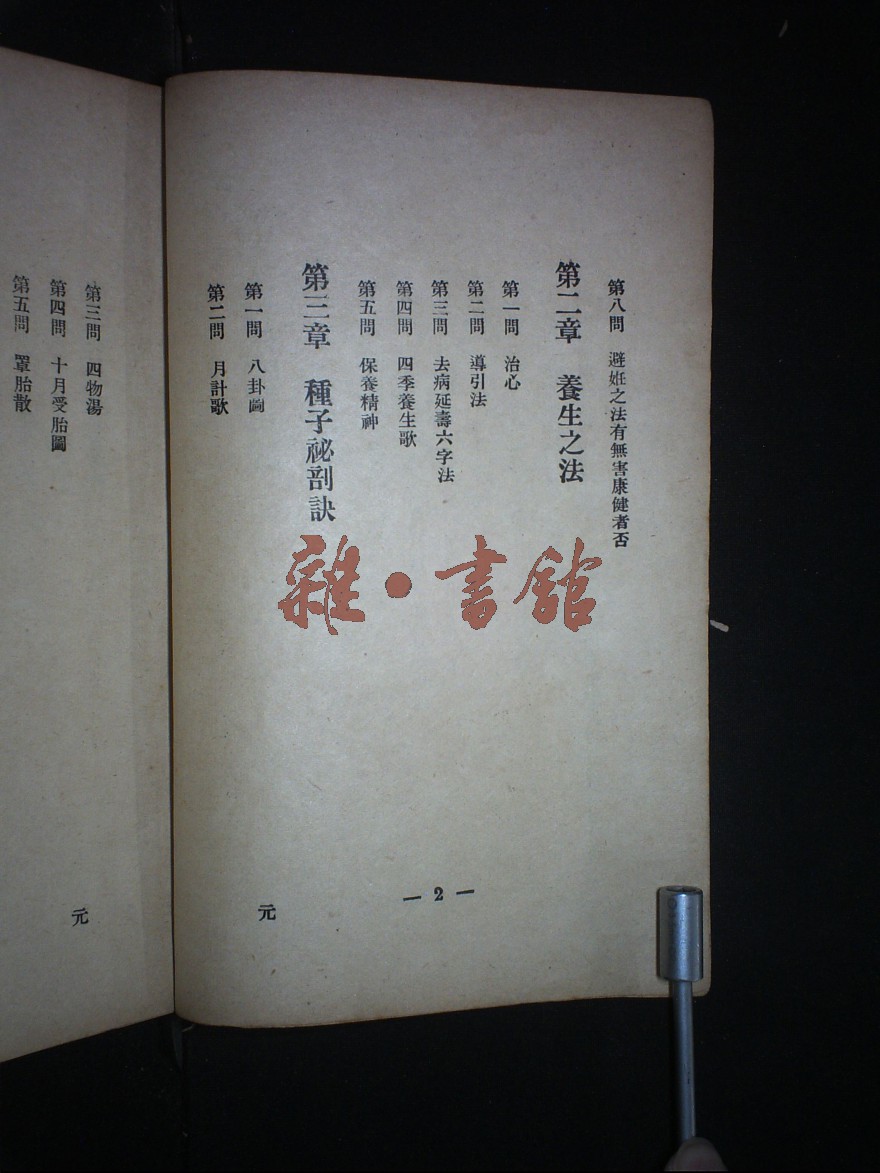 第八問 避姙之法有無害康健者否
第二章 養生之法
第一問 治心
第二問 導引法
第三問 去病延壽六字法
第四問 四季養生歌
第五問 保養精神
第三章 種子祕剖訣
第一問 八卦圖
第二問 月計歌
元
— 2 —
第三問 四物湯
第四問 十月受胎圖
第五問 罩胎散
元
雜•書館